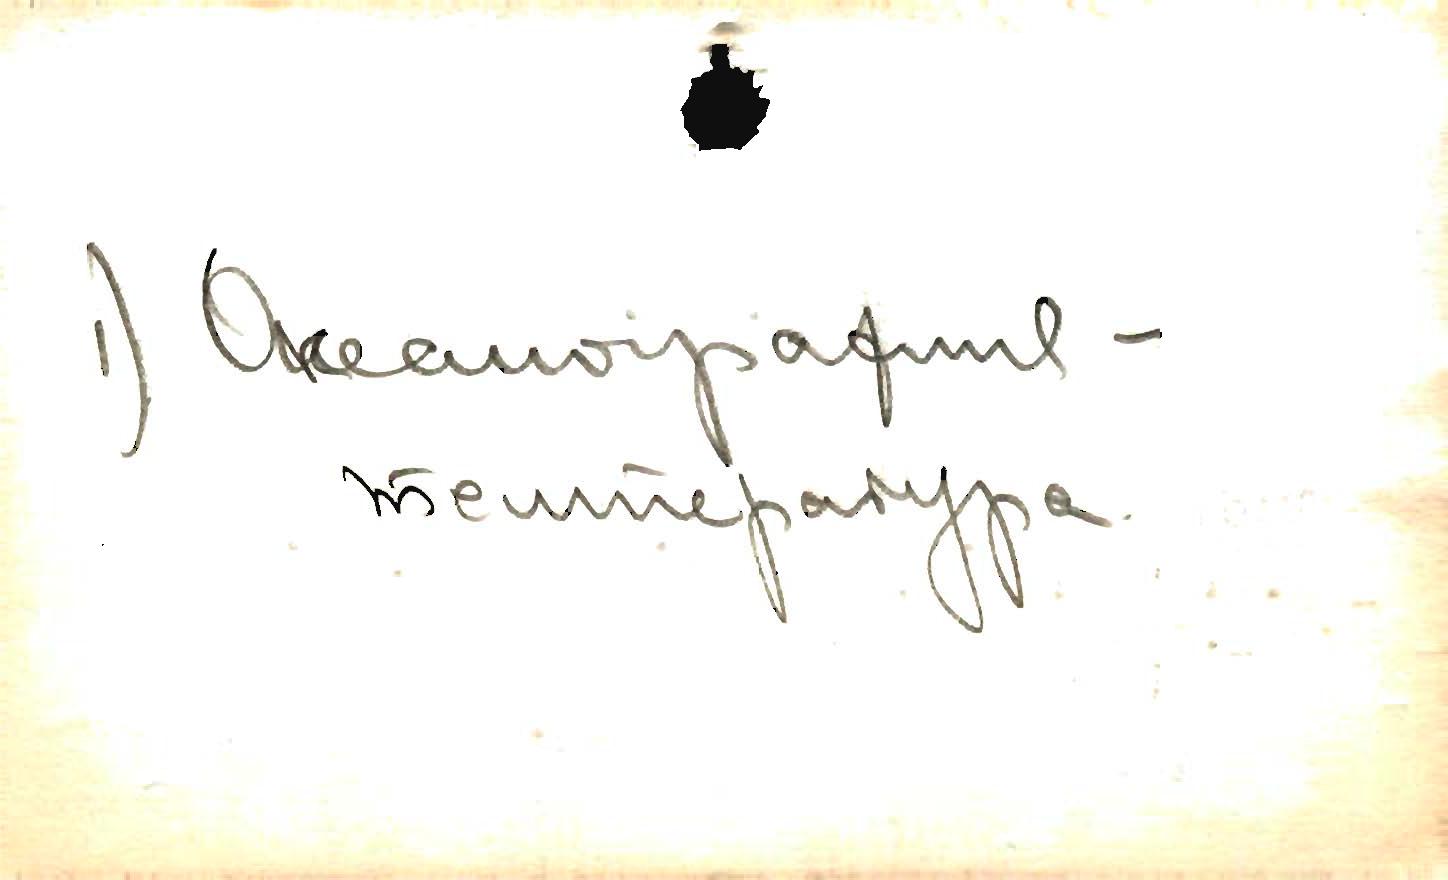 1) Океанография -
температура.